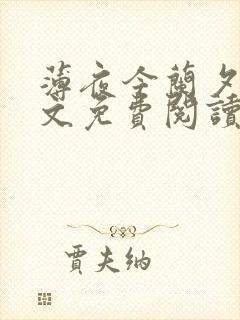 薄夜今蘭夕
文免費閱讀
賈夫納